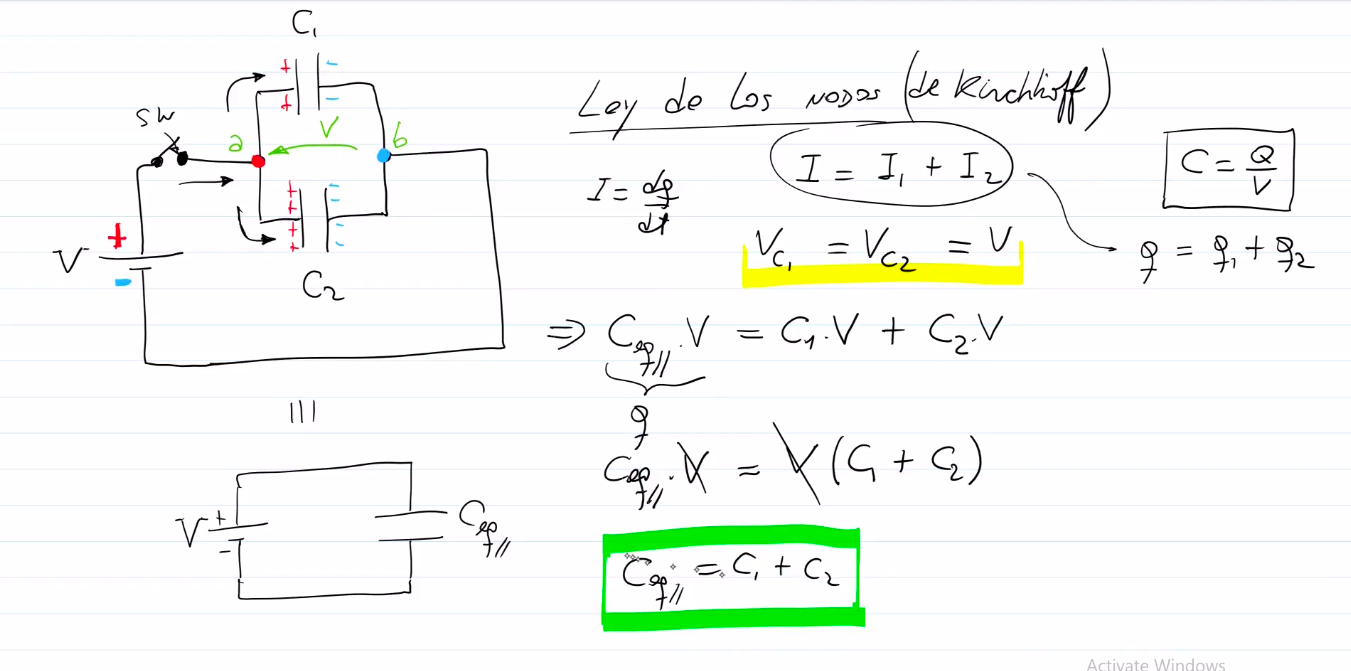 C₁
+ -
+ -
SW
a V b
+ -
+
+ -
+ -
V + -
C₂
|||
V + - Ceq//
Ley de Los nodos (de Kirchhoff)
I = dq/dt
I = I₁ + I₂
C = Q/V
V_C₁ = V_C₂ = V
q = q₁ + q₂
⇒ Ceq// . V = C₁.V + C₂.V
q
Ceq// . V = V (C₁ + C₂)
Ceq// = C₁ + C₂
Activate Windows